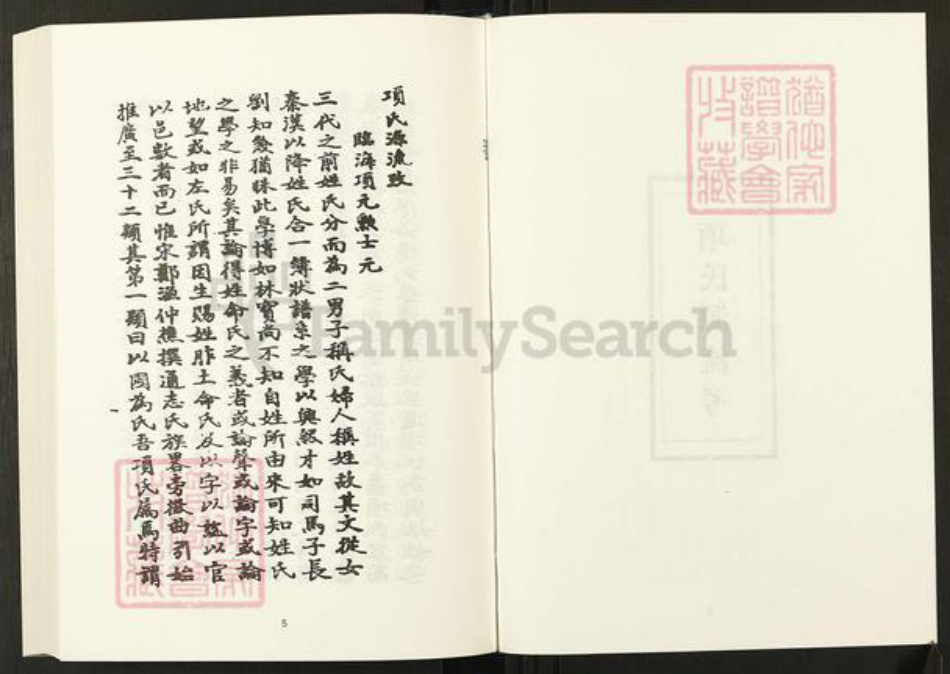 項氏源流攷
臨海項元勲士元
三代之前姓氏分而為二男子稱氏婦人稱姓故其文從女
秦漢以降姓氏合一簿狀譜系之學以興然才如司馬子長
劉知幾猶昧此學博如林寶尚不知自姓所由來可知姓氏
之學之非易矣其論得姓命氏之義者或論聲或論字或論
地望或如左氏所謂因生賜姓胙土命氏及以字以諡以官
以邑數者而已惟宋鄭漁仲樵撰通志氏族畧旁徵曲引始
推廣至三十二類其第一類曰以國為氏吾項氏屬焉特謂
5
FamilySearch
猶他家
譜學會
收藏
項氏源流考